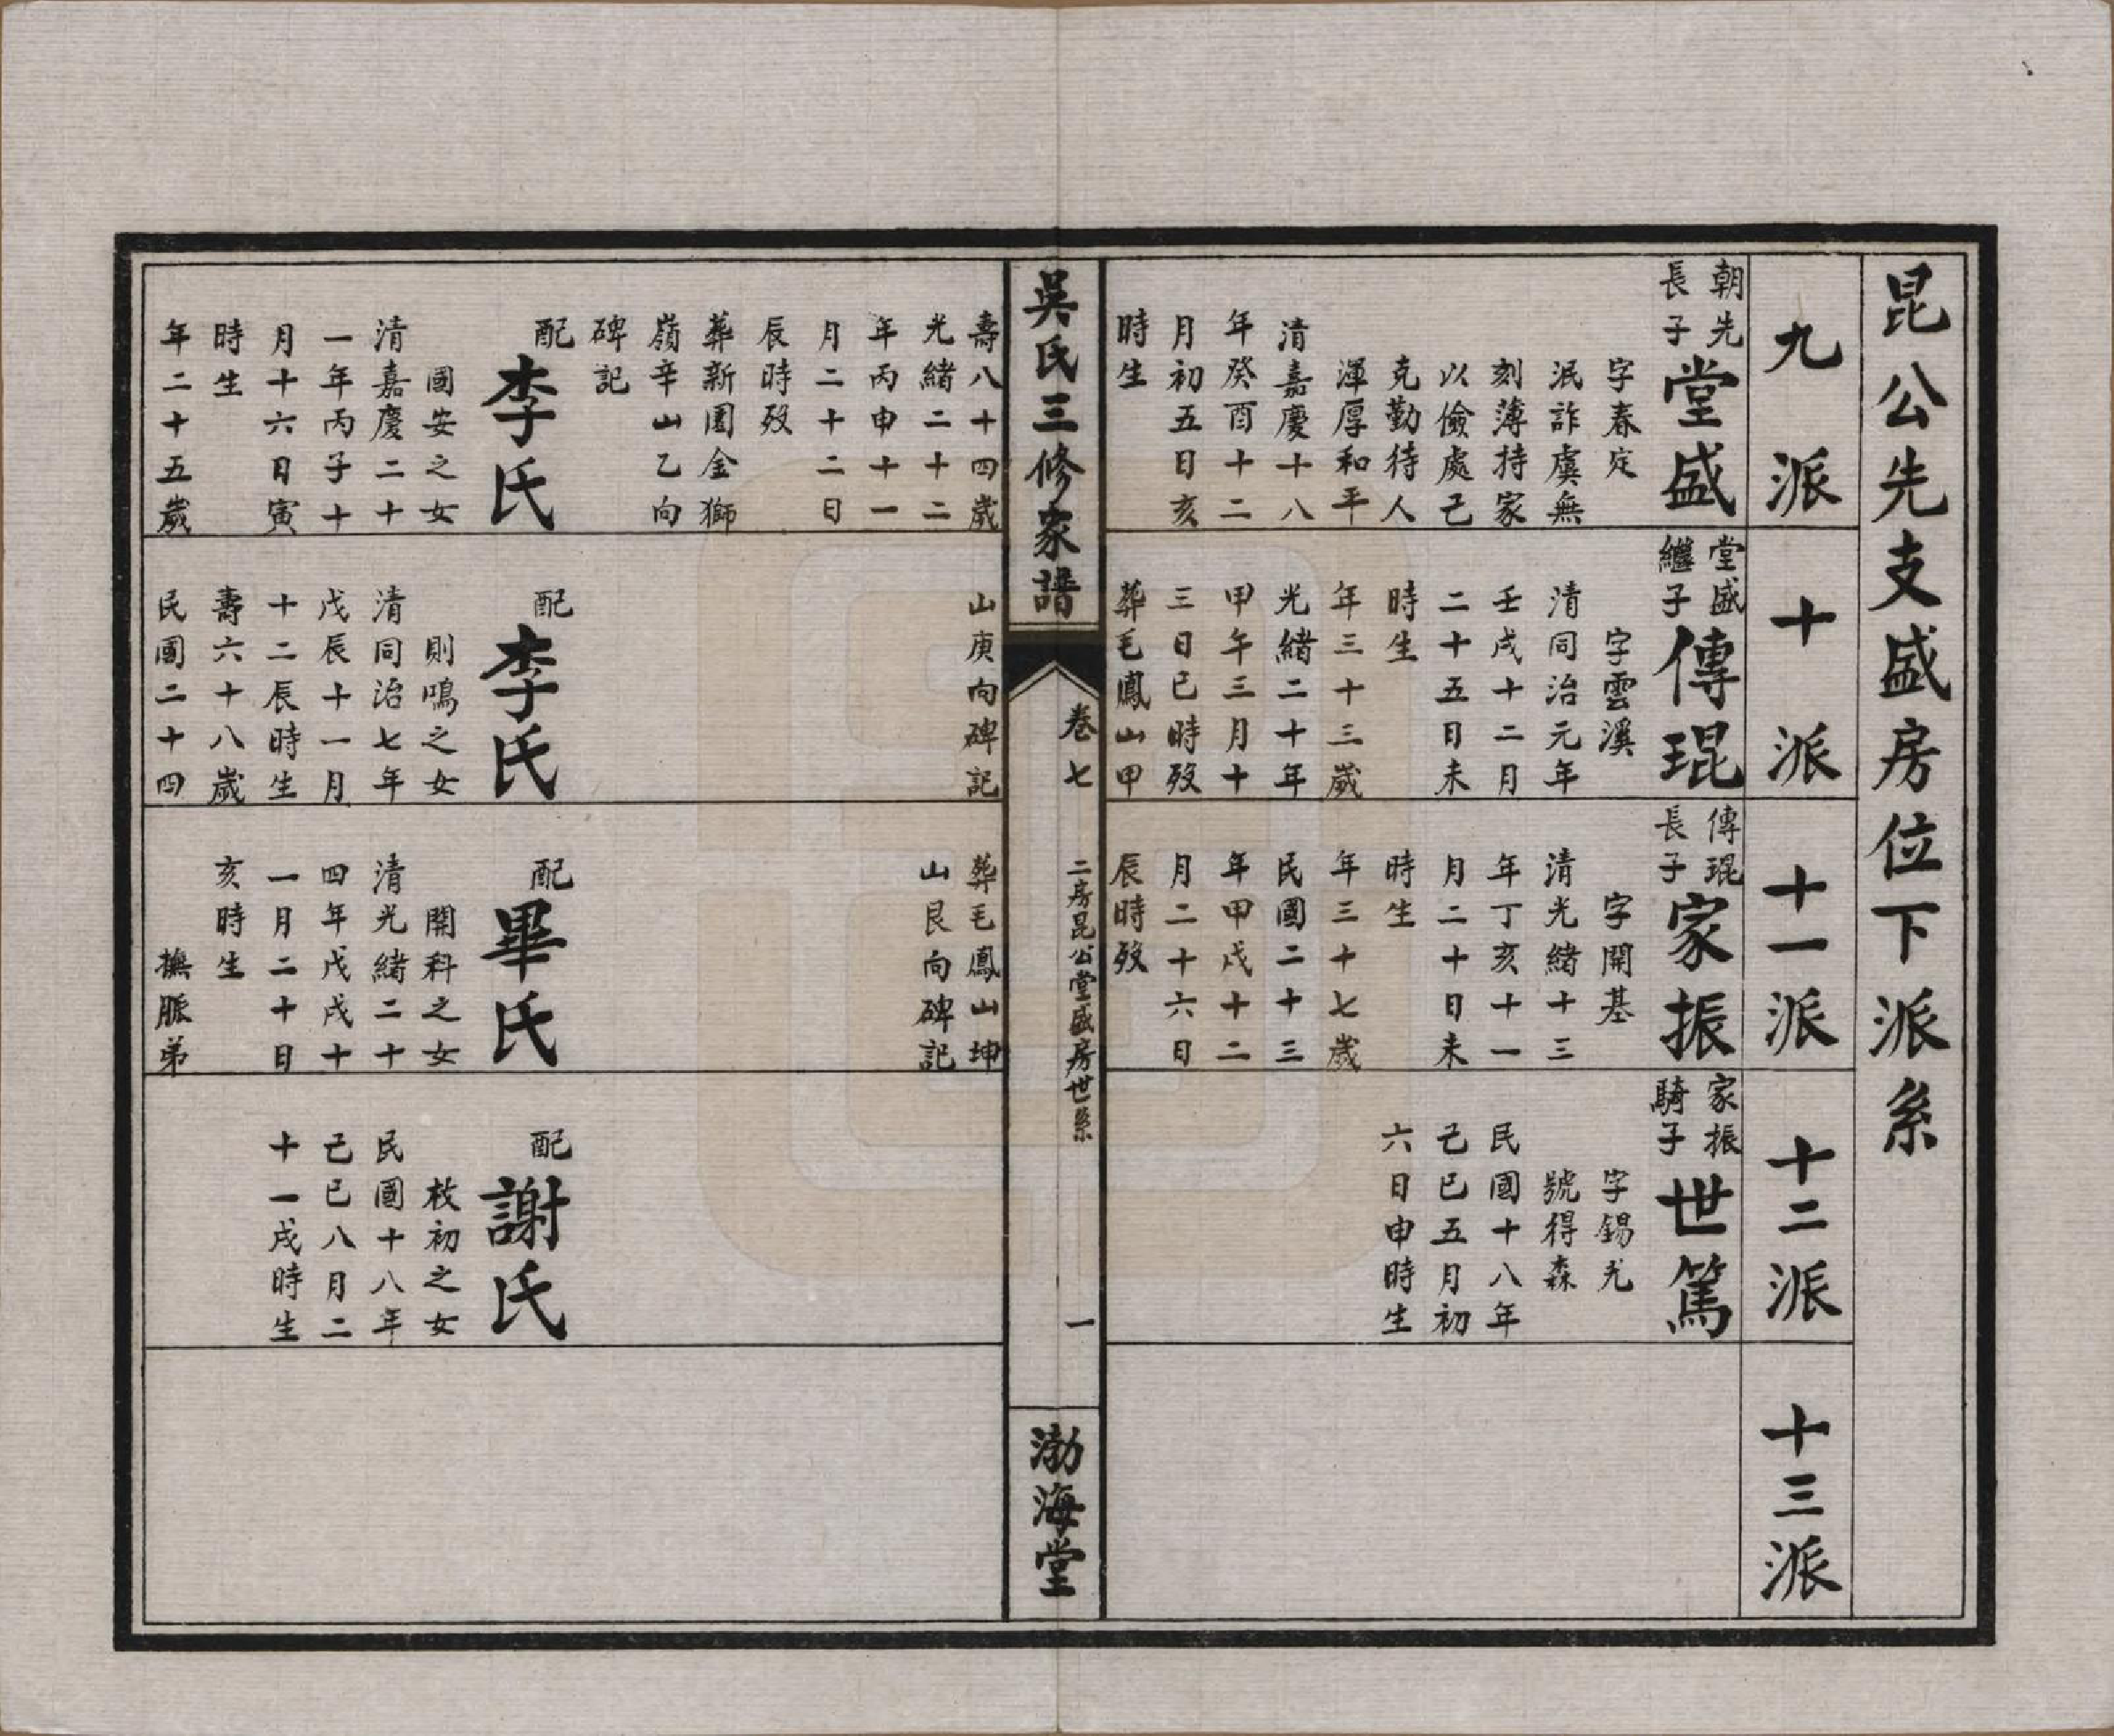 昆公先支盛房位下派系
九派
朝先
長子
堂盛
字春定
泯詐虞無
刻薄持家
以儉處己
克勤待人
渾厚和平
清嘉慶十八
年癸酉十二
月初五日亥
時生
十派
堂盛
繼子
傳琨
字雲溪
清同治元年
壬戌十二月
二十五日未
時生
年三十三歲
光緒二十年
甲午三月十
三日巳時歿
葬毛鳳山甲
十一派
傳琨
長子
家振
字開基
清光緒十三
年丁亥十一
月二十日未
時生
年三十七歲
民國二十三
年甲戌十二
月二十六日
辰時歿
十二派
家振
騎子
世篤
字錫光
號得森
民國十八年
己巳五月初
六日申時生
十三派
吳氏三修家譜
卷七
二房昆公堂盛房世系
一
渤海堂
壽八十四歲
光緒二十二
年丙申十一
月二十二日
辰時歿
葬新園金獅
嶺辛山乙向
碑記
配
李氏
國安之女
清嘉慶二十
一年丙子十
月十六日寅
時生
年二十五歲
山庚向碑記
配
李氏
則鳴之女
清同治七年
戊辰十一月
十二辰時生
壽六十八歲
民國二十四
葬毛鳳山坤
山艮向碑記
配
畢氏
開科之女
清光緒二十
四年戊戌十
一月二十日
亥時生
撫脈弟
配
謝氏
枚初之女
民國十八年
己巳八月二
十一戌時生